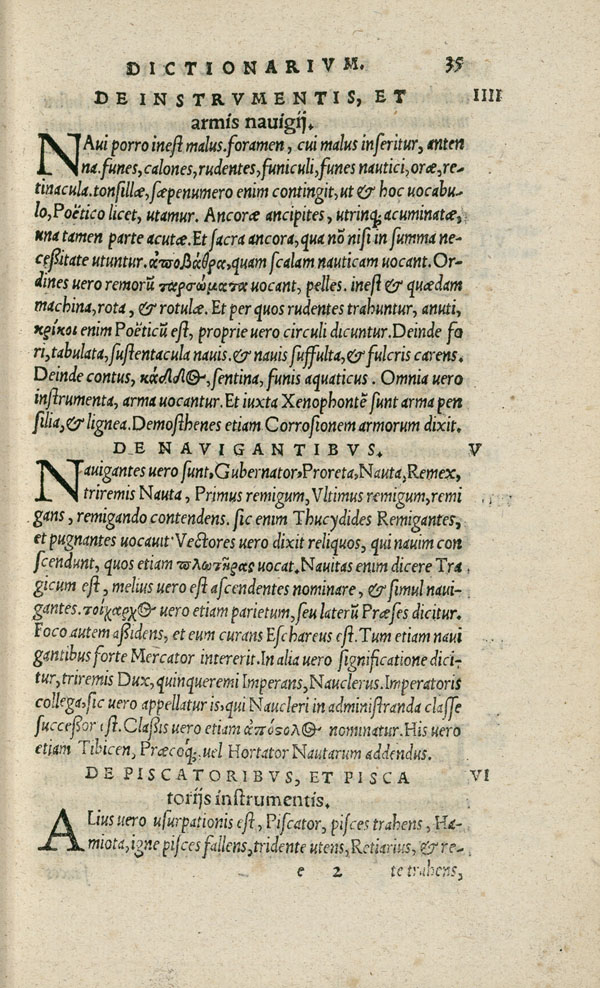 DICTIONARIVM. 35
DE INSTRVMENTIS, ET IIII
armis nauigij.
NAui porro inest malus. foramen, cui malus inseritur, anten
na. funes, calones, rudentes, funiculi, funes nautici, oræ, re-
tinacula. tonsillæ, sæpenumero enim contingit, ut & hoc uocabu-
lo, Poëtico licet, utamur. Ancoræ ancipites, utrinq; acuminatæ,
una tamen parte acutæ. Et sacra ancora, qua nō nisi in summa ne-
cessitate utuntur. ἀποβάθρα, quam scalam nauticam uocant. Or-
dines uero remorū ταρσώματα uocant, pelles. inest & quædam
machina, rota, & rotulæ. Et per quos rudentes trahuntur, anuti,
κρίκοι enim Poëticū est, proprie uero circuli dicuntur. Deinde fo
ri, tabulata, sustentacula nauis. & nauis suffulta, & fulcris carens.
Deinde contus, κάλλος, sentina, funis aquaticus. Omnia uero
instrumenta, arma uocantur. Et iuxta Xenophontē sunt arma pen
silia, & lignea. Demosthenes etiam Corrosionem armorum dixit.
DE NAVIGANTIBVS. V
NAuigantes uero sunt, Gubernator, Proreta, Nauta, Remex,
triremis Nauta, Primus remigum, Vltimus remigum, remi
gans, remigando contendens. sic enim Thucydides Remigantes,
et pugnantes uocauit. Vectores uero dixit reliquos, qui nauim con
scendunt, quos etiam πλωτῆρας uocat. Nauitas enim dicere Tra
gicum est, melius uero est ascendentes nominare, & simul naui-
gantes. τοίχαρχος uero etiam parietum, seu laterū Præses dicitur.
Foco autem assidens, et eum curans Eschareus est. Tum etiam naui
gantibus forte Mercator intererit. In alia uero significatione dici-
tur, triremis Dux, quinqueremi Imperans, Nauclerus. Imperatoris
collega, sic uero appellatur is, qui Naucleri in administranda classe
successor est. Classis uero etiam ἀπόστολος nominatur. His uero
etiam Tibicen, Præcoq́; uel Hortator Nautarum addendus.
DE PISCATORIBVS, ET PISCA VI
torijs instrumentis.
ALius uero usurpationis est, Piscator, pisces trahens, Ha-
miota, igne pisces fallens, tridente utens, Retiarius, & re-
e 2 te trahens,